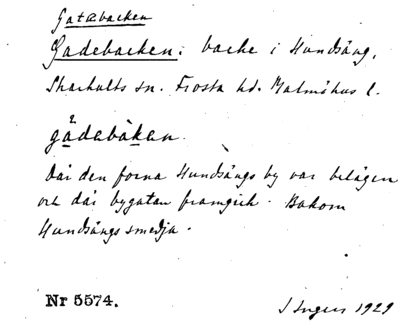 Gatebacken
Gadebacken: backe i Hundsäng,
Skarhults sn. Frosta hd. Malmöhus l.
gådebàken.
Där den forna Hundsängs by var belägen
och där bygatan framgick. Bakom
Hundsängs smedja.
Nr 5574.
J Ingers 1929